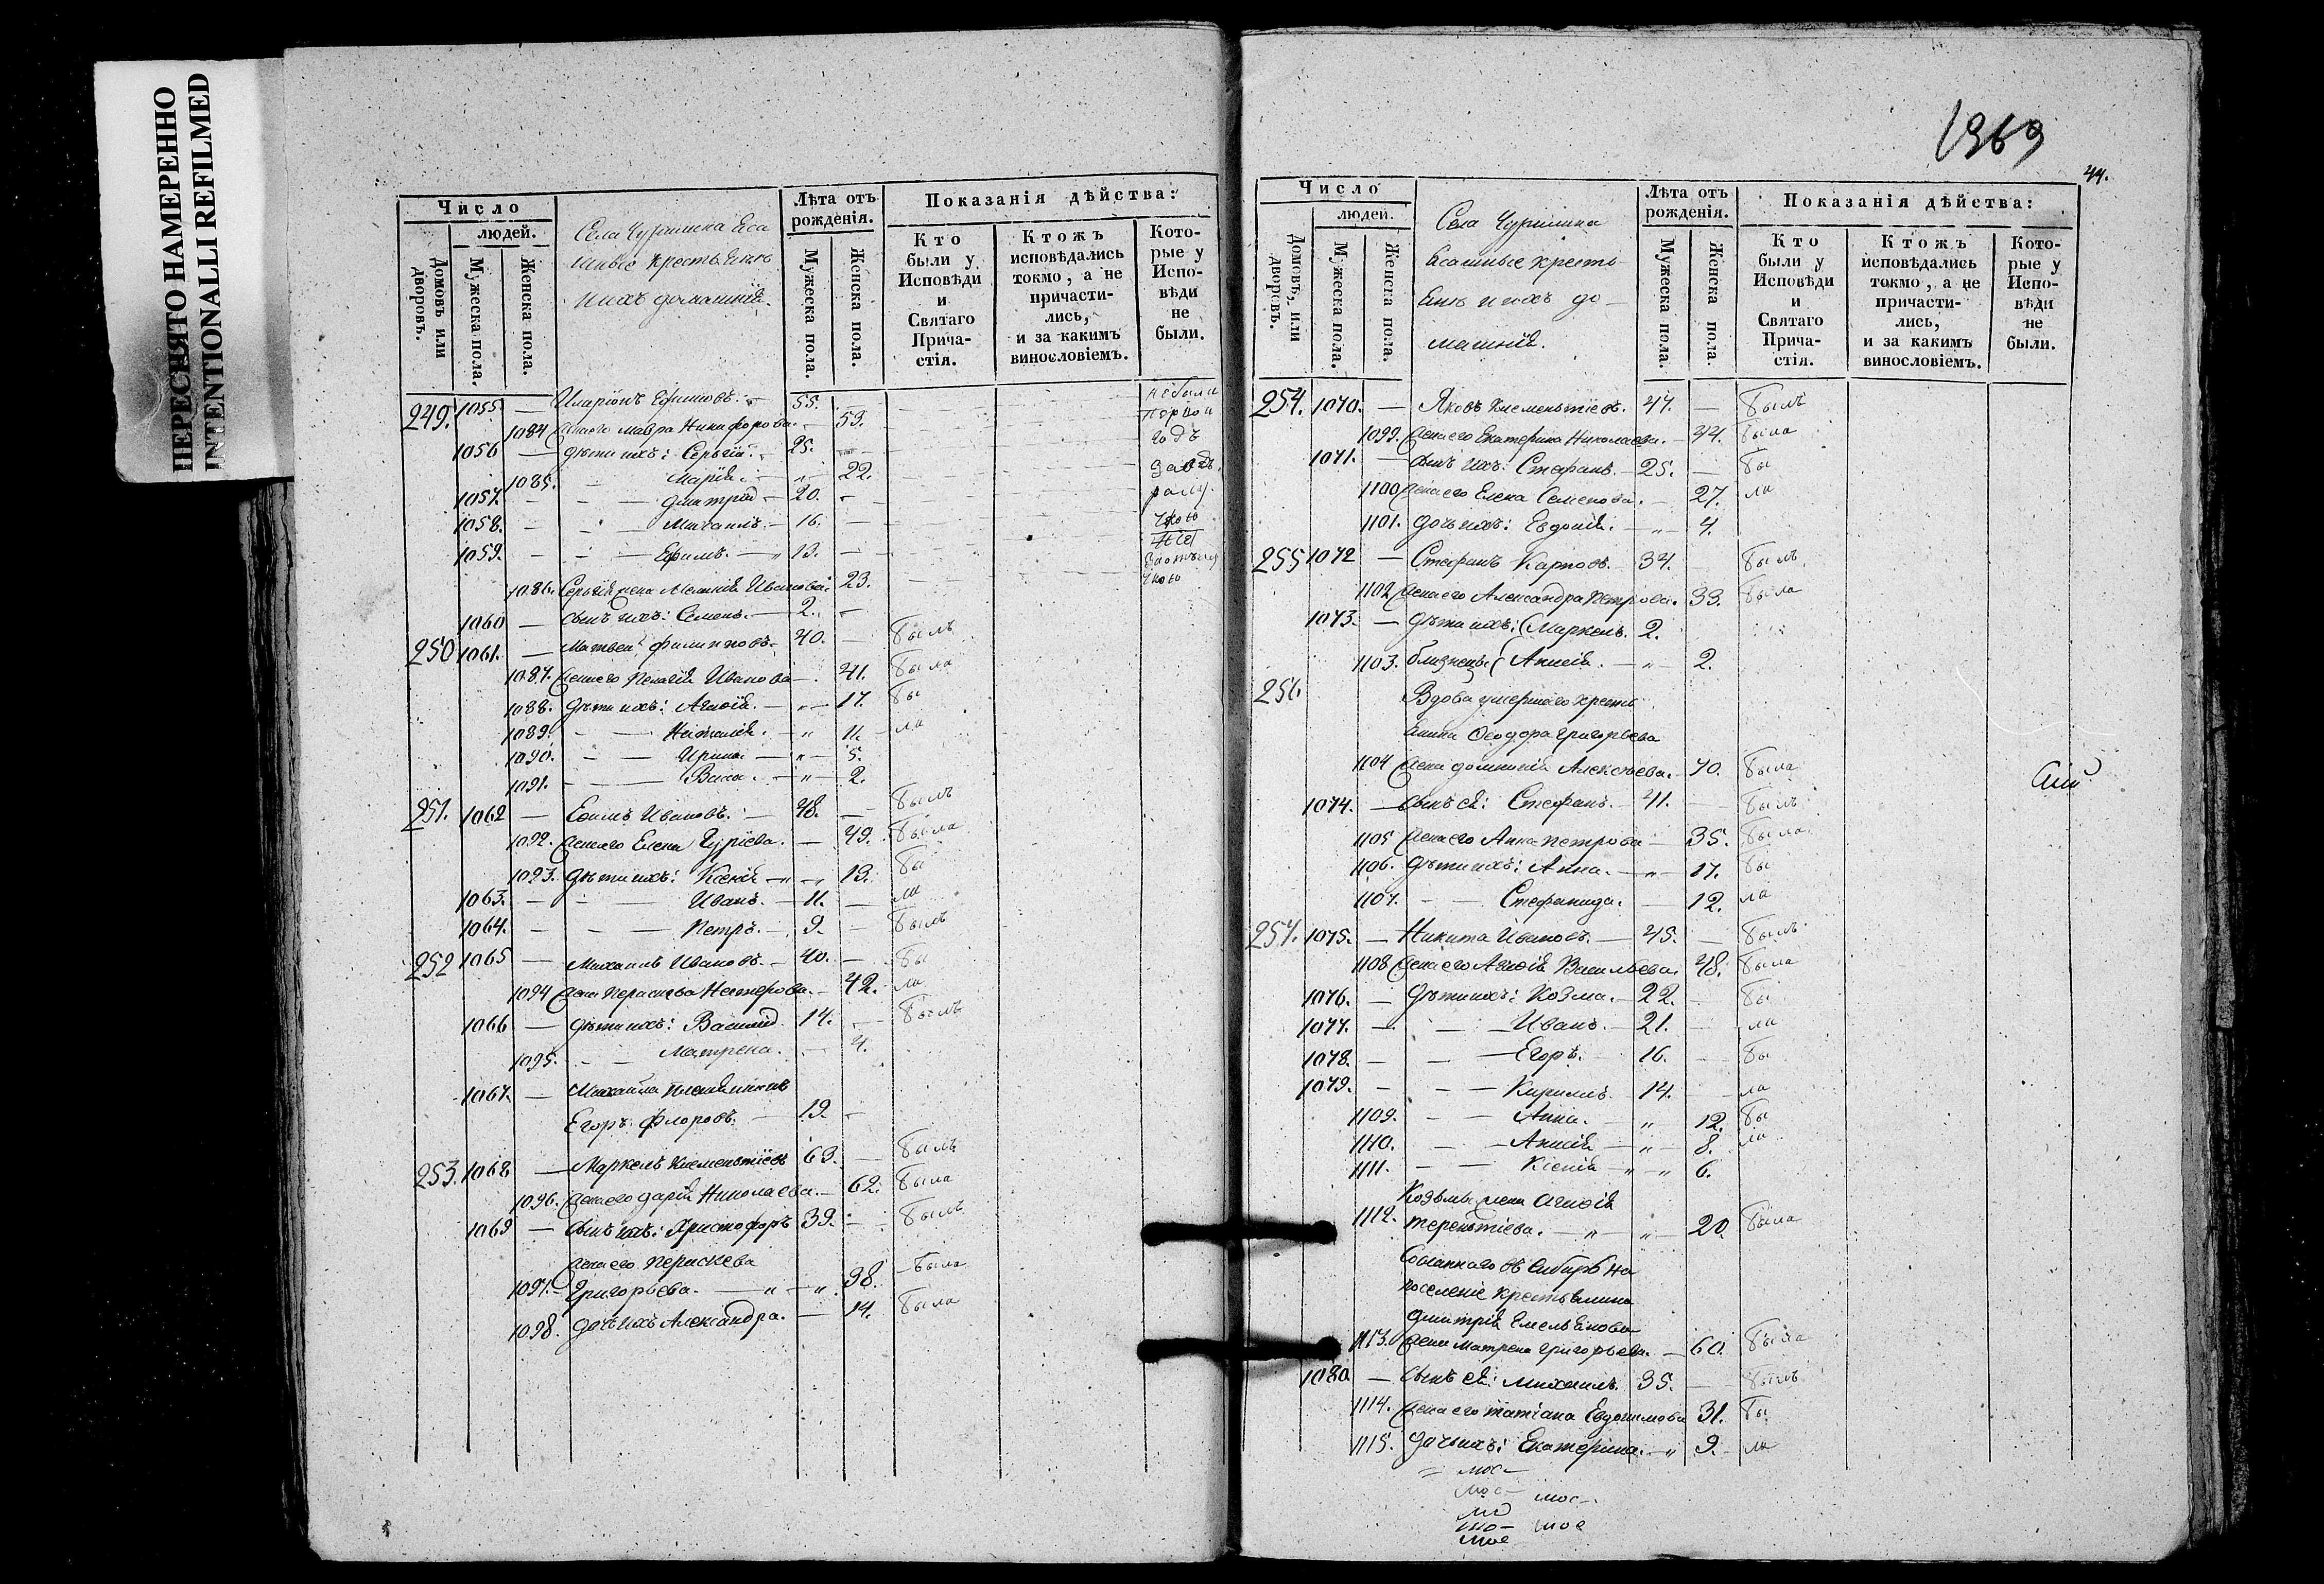 ПЕРЕСНЯТО НАМЕРЕННО
INTENTIONALLI REFILMED
Число
людей.
Домовъ или дворовъ.
Мужеска пола.
Женска пола.
Села
крестьяне
и ихъ домашнія.
Лѣта отъ рожденія.
Мужеска пола.
Женска пола.
Показанія дѣйства:
Кто были у Исповѣди и Святаго Прича-стія.
Ктожъ исповѣдались токмо, а не причасти-лись, и за какимъ винословіемъ.
Кото-рые у Испо-вѣди не были.
249. 1055. — Иларіонъ Ефимовъ. — 55. не были
1084 Жена его Мавра Никифорова. — 53.
1056 — дѣти ихъ: Сергій. — 25. годъ
1085. — Марія. — 22.
1057. — — Дмитрій — 20. —
1058. — — Михаилъ. — 16. —
1059. — — Ефимъ. — 13. —
1086. Сергія жена Меланія Иванова. 23.
1060 — сынъ ихъ: Семенъ. — 2. —
250 1061. — Матвей Филипповъ. — 40. — былъ
1087. Жена его Пелагія Иванова — 41. была
1088. дѣти ихъ: Агаѳія. — " — 17. бы
1089. — — Наталія. — " 11. — ла
1090. — — Ирина. — " — 5.
1091. — — Васса. — " — 2.
251. 1062 — Ефимъ Ивановъ. — 48. — былъ
1092. Жена его Елена Гуріева. — 49. была
1093. дѣти ихъ: Ксенія — " — 13. бы
1063. — — Иванъ. — 11. — ла
1064. — — — Петръ. — 9. — былъ
252 1065 — Михаилъ Ивановъ. — 40. — бы
1094 Жена Параскева Нестерова. — 42. ла
1066 — дѣти ихъ: Василій. 14. — былъ
1095. — — Матрена. — 4.
1067. — Михаила племянникъ
Егоръ Флоровъ. — 19. —
253. 1068 — Маркелъ Клементіевъ 63. — былъ
1096. Жена его Дарія Николаева. — 62. была
1069 — Сынъ ихъ: Христофоръ 39. — былъ
Жена его Параскева
1097. Григорьева. — " — " 38. — была
1098. дочь ихъ Александра. — 14. была
1969
44.
Число
людей.
Домовъ, или дворовъ.
Мужеска пола.
Женска пола.
Села
крестья-
не и ихъ до-
машнія.
Лѣта отъ рожденія.
Мужеска пола.
Женска пола.
Показанія дѣйства:
Кто были у Исповѣди и Святаго Прича-стія.
Ктожъ исповѣдались токмо, а не причасти-лись, и за какимъ винословіемъ.
Кото-рые у Испо-вѣди не были.
254. 1070. — Яковъ Клементіевъ. 47. — былъ
1099. Жена его Екатерина Николаева. — 44. была
1071. — сынъ ихъ: Стефанъ. — 25. — бы
1100 Жена его Елена Семенова. — 27. ла
1101. дочь ихъ: Евдокія. — " — 4.
255 1072 — Стефанъ Карповъ. — 34. былъ
1102 Жена его Александра Петрова. 33. была
1073. — дѣти ихъ: (Маркелъ. 2.
1103. близнецы ( Анисія. — " — 2.
256. Вдова умершаго кресть
янина Ѳеодора Григорьева
1104 Жена Домникія Алексѣева. — 70. была
1074. — сынъ ея: Стефанъ. — 41. — былъ
1105 Жена его Анна Петрова — 35. была
1106. дѣти ихъ: Анна. — " — 17. бы
1107. — — Стефанида. — 12. ла
257. 1075. — Никита Ивановъ. — 45. — былъ
1108 Жена его Агаѳія Васильева. 48. была
1076. — дѣти ихъ: Козма. — 22. — бы
1077. — — Иванъ. — 21. — ла
1078. — — Егоръ. — 16. — бы
1079. — — Кирилъ. — 14. — ла
1109. — — Анна. — " 12. бы
1110. — — Анисія — " — 8. ла
1111. — — Ксенія — " — " 6.
Козьмы жена Агаѳія
1112. Терентіева. — " — " — 20. была
Сосланнаго въ Сибирь на
поселеніе крестьянина
Дмитрія Емельянова
1113. Жена Матрена Григорьева. — 60. была
1080 — сынъ ея: Михаилъ. 35. — былъ
1114. Жена его Татіана Евдокимова 31. бы
1115. дочь ихъ: Екатерина. — " 9. — ла